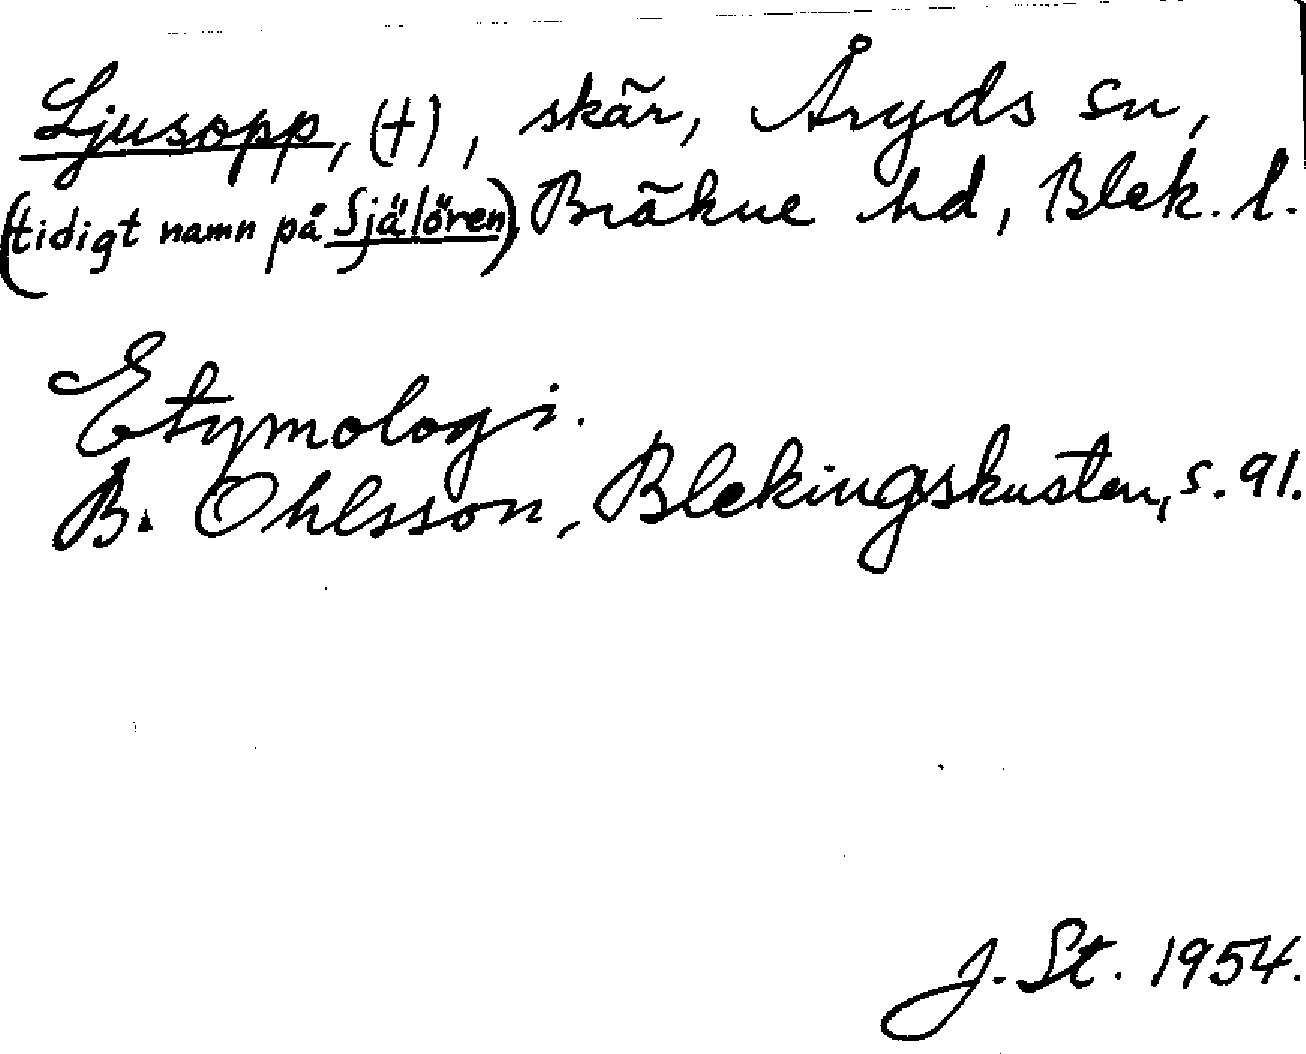 Ljusopp, (†), skär, Åryds sn,
(tidigt namn på Själören) Bräkne hd, Blek. l.
Etymologi.
B. Ohlsson, Blekingskusten, s. 91.
J. St. 1954.